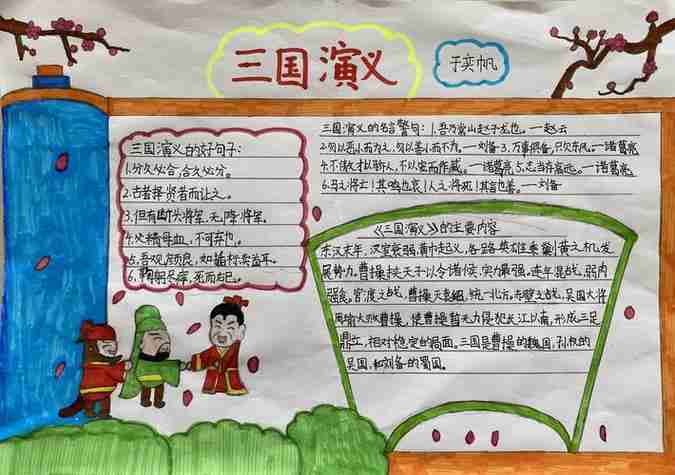 三国演义
于奕帆
三国演义的好句子：
1.分久必合，合久必分。
2.古者择贤者而让之。
3.但有断头将军，无降将军。
4.父精母血，不可弃也。
5.吾观颜良，如插标卖首耳。
6.鞠躬尽瘁，死而后已。
三国演义的名言警句：1.吾乃常山赵子龙也。—赵云
2.勿以恶小而为之，勿以善小而不为。—刘备 3.万事俱备，只欠东风。—诸葛亮
4.不傲才以骄人，不以宠而作威。—诸葛亮 5.志当存高远。—诸葛亮
6.鸟之将士！其鸣也哀！人之将死！其言也善。—刘备
《三国演义》的主要内容
东汉末年，汉室衰弱，黄巾起义，各路英雄乘剿黄之机，发
展势力。曹操挟天子以令诸侯，实力最强。连年混战，弱肉
强食。官渡之战，曹操灭袁绍，统一北方。赤壁之战，吴国大将
周瑜大败曹操，使曹操暂无力侵犯长江以南，形成三足
鼎立，相对稳定的局面。三国是曹操的魏国，孙权的
吴国，和刘备的蜀国。